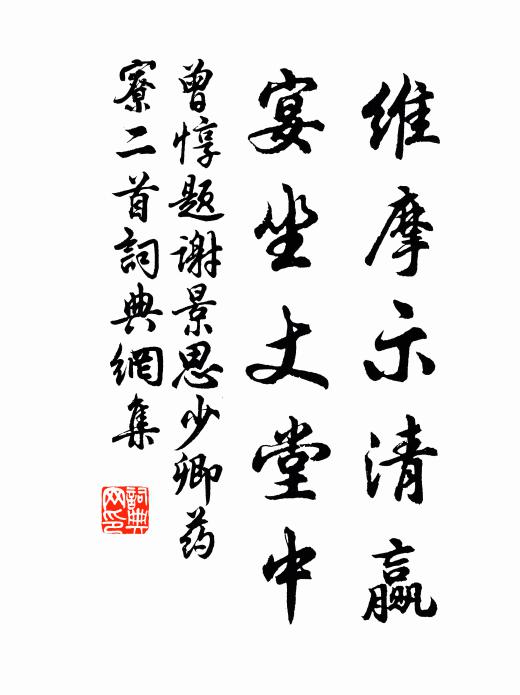 維摩示清羸
宴坐丈堂中
曾惇題謝景思少卿药
寮二首詞典網集
詞典
网印